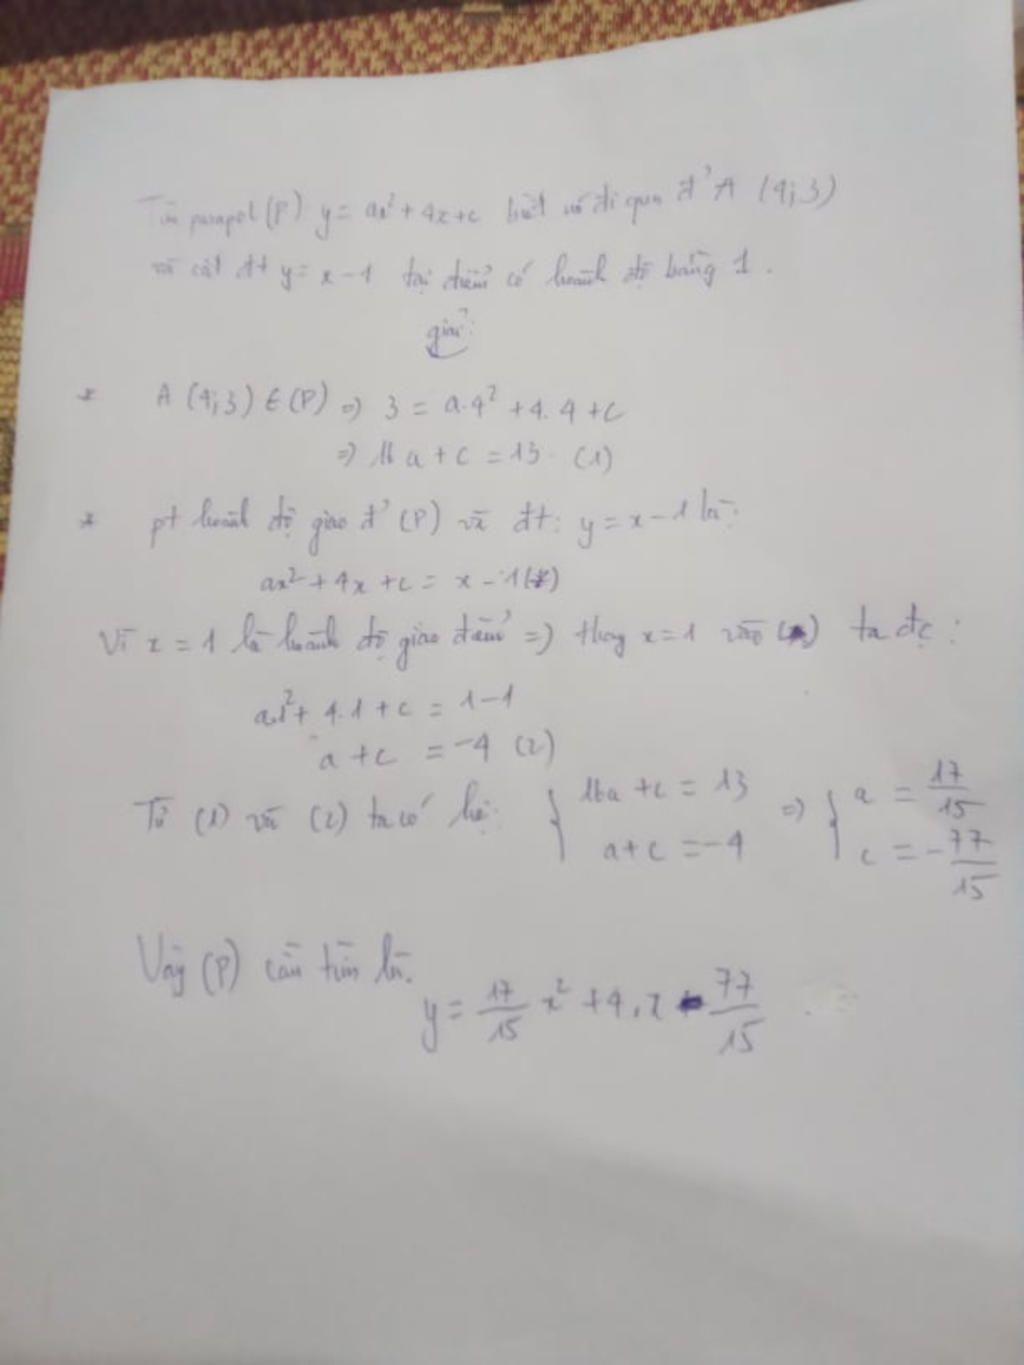 Tìm parapol (P) y = ax² + 4x + c biết nó đi qua đ' A (4;3)
và cắt đt y = x - 1 tại điểm có hoành độ bằng 1.
giải:
* A (4;3) ∈ (P) => 3 = a.4² + 4.4 + c
=> 16a + c = 13 (1)
* pt hoành độ giao đ' (P) và đt: y = x - 1 là:
ax² + 4x + c = x - 1 (*)
Vì x = 1 là hoành độ giao điểm => thay x = 1 vào (*) ta đc:
a.1² + 4.1 + c = 1 - 1
a + c = -4 (2)
Từ (1) và (2) ta có hệ: { 16a + c = 13 ; a + c = -4 => { a = 17/15 ; c = -77/15
Vậy (P) cần tìm là:
y = 17/15 x² + 4.x - 77/15